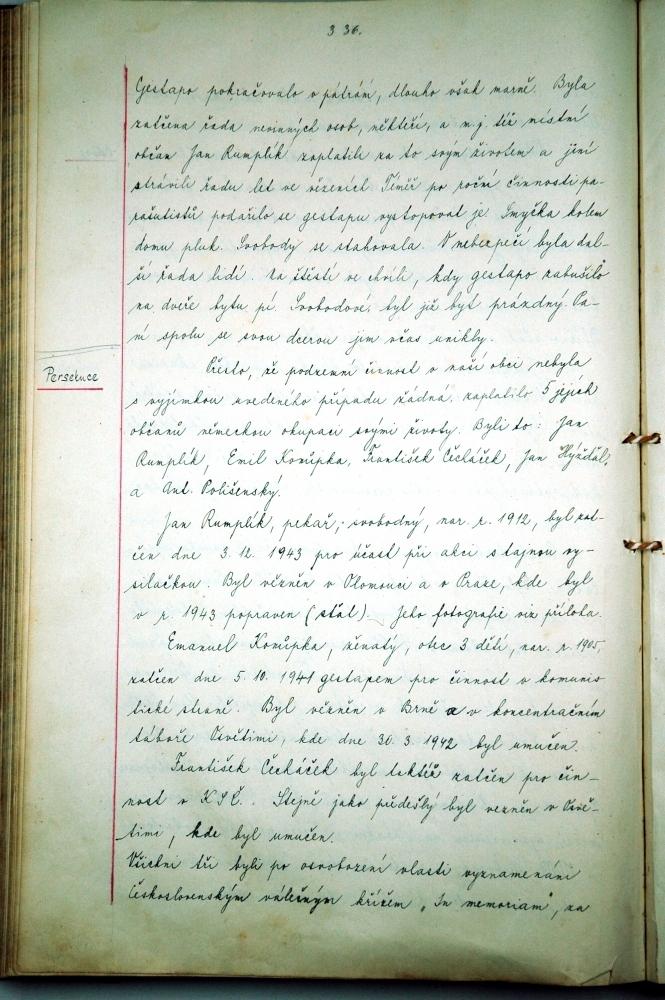 336.
Gestapo pokračovalo v pátrání, dlouho však marně. Byla
zatčena řada nevinných osob, někteří, a m. j. též místní
občan Jan Rumplík zaplatili za to svým životem a jiní
strávili řadu let ve vězeních. Téměř po roční činnosti pa-
rašutistů podařilo se gestapu vystopovat je. Smyčka kolem
domu pluk. Svobody se stahovala. V nebezpečí byla dal-
ší řada lidí. Na štěstí ve chvíli, kdy gestapo zabušilo
na dveře bytu pí. Svobodové, byl již byt prázdný. Pa-
ní spolu se svou dcerou jim včas unikly.
Persekuce
Přesto, že podzemní činnost v naší obci nebyla
s vyjímkou uvedeného případu žádná, zaplatilo 5 jejích
občanů německou okupaci svými životy. Byli to: Jan
Rumplík, Emil Konůpka, František Čecháček, Jan Hýžďál,
a Ant. Polišenský.
Jan Rumplík, pekař, svobodný, nar. r. 1912, byl zat-
čen dne 3. 12. 1943 pro účast při akci s tajnou vy-
silačkou. Byl vězněn v Olomouci a v Praze, kde byl
v r. 1943 popraven (sťal). Jeho fotografie viz příloha.
Emanuel Konůpka, ženatý, otec 3 dětí, nar. r. 1905,
zatčen dne 5. 10. 1941 gestapem pro činnost v komunis
tické straně. Byl vězněn v Brně a v koncentračním
táboře Osvětimi, kde dne 30. 3. 1942 byl umučen.
František Čecháček byl taktéž zatčen pro čin-
nost v KSČ. Stejně jako předešlý byl vezněn v Osvě-
timi, kde byl umučen.
Všichni tři byli po osvobození vlasti vyznamenáni
Československým válečným křížem „In memoriam", za